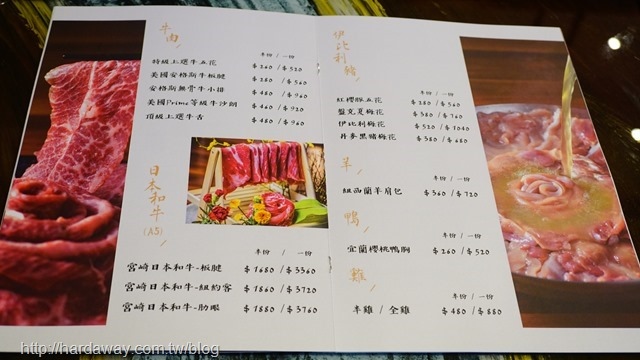 牛肉
半份 / 一份
特級上選牛五花 $260 / $520
美國安格斯牛板腱 $280 / $560
安格斯無骨牛小排 $480 / $960
美國Prime等級牛沙朗 $460 / $920
頂級上選牛舌 $480 / $960
日本和牛(A5)
半份 / 一份
宮崎日本和牛-板腱 $1680 / $3360
宮崎日本和牛-紐約客 $1860 / $3720
宮崎日本和牛-肋眼 $1880 / $3760
伊比利豬
半份 / 一份
紅櫻豚五花 $280 / $560
盤克夏梅花 $380 / $760
伊比利梅花 $520 / $1040
丹麥黑豬梅花 $380 / $680
羊
半份 / 一份
紐西蘭羊肩包 $360 / $720
鴨
半份 / 一份
宜蘭櫻桃鴨胸 $260 / $520
雞
半雞 / 全雞 $480 / $880
http://hardaway.com.tw/blog